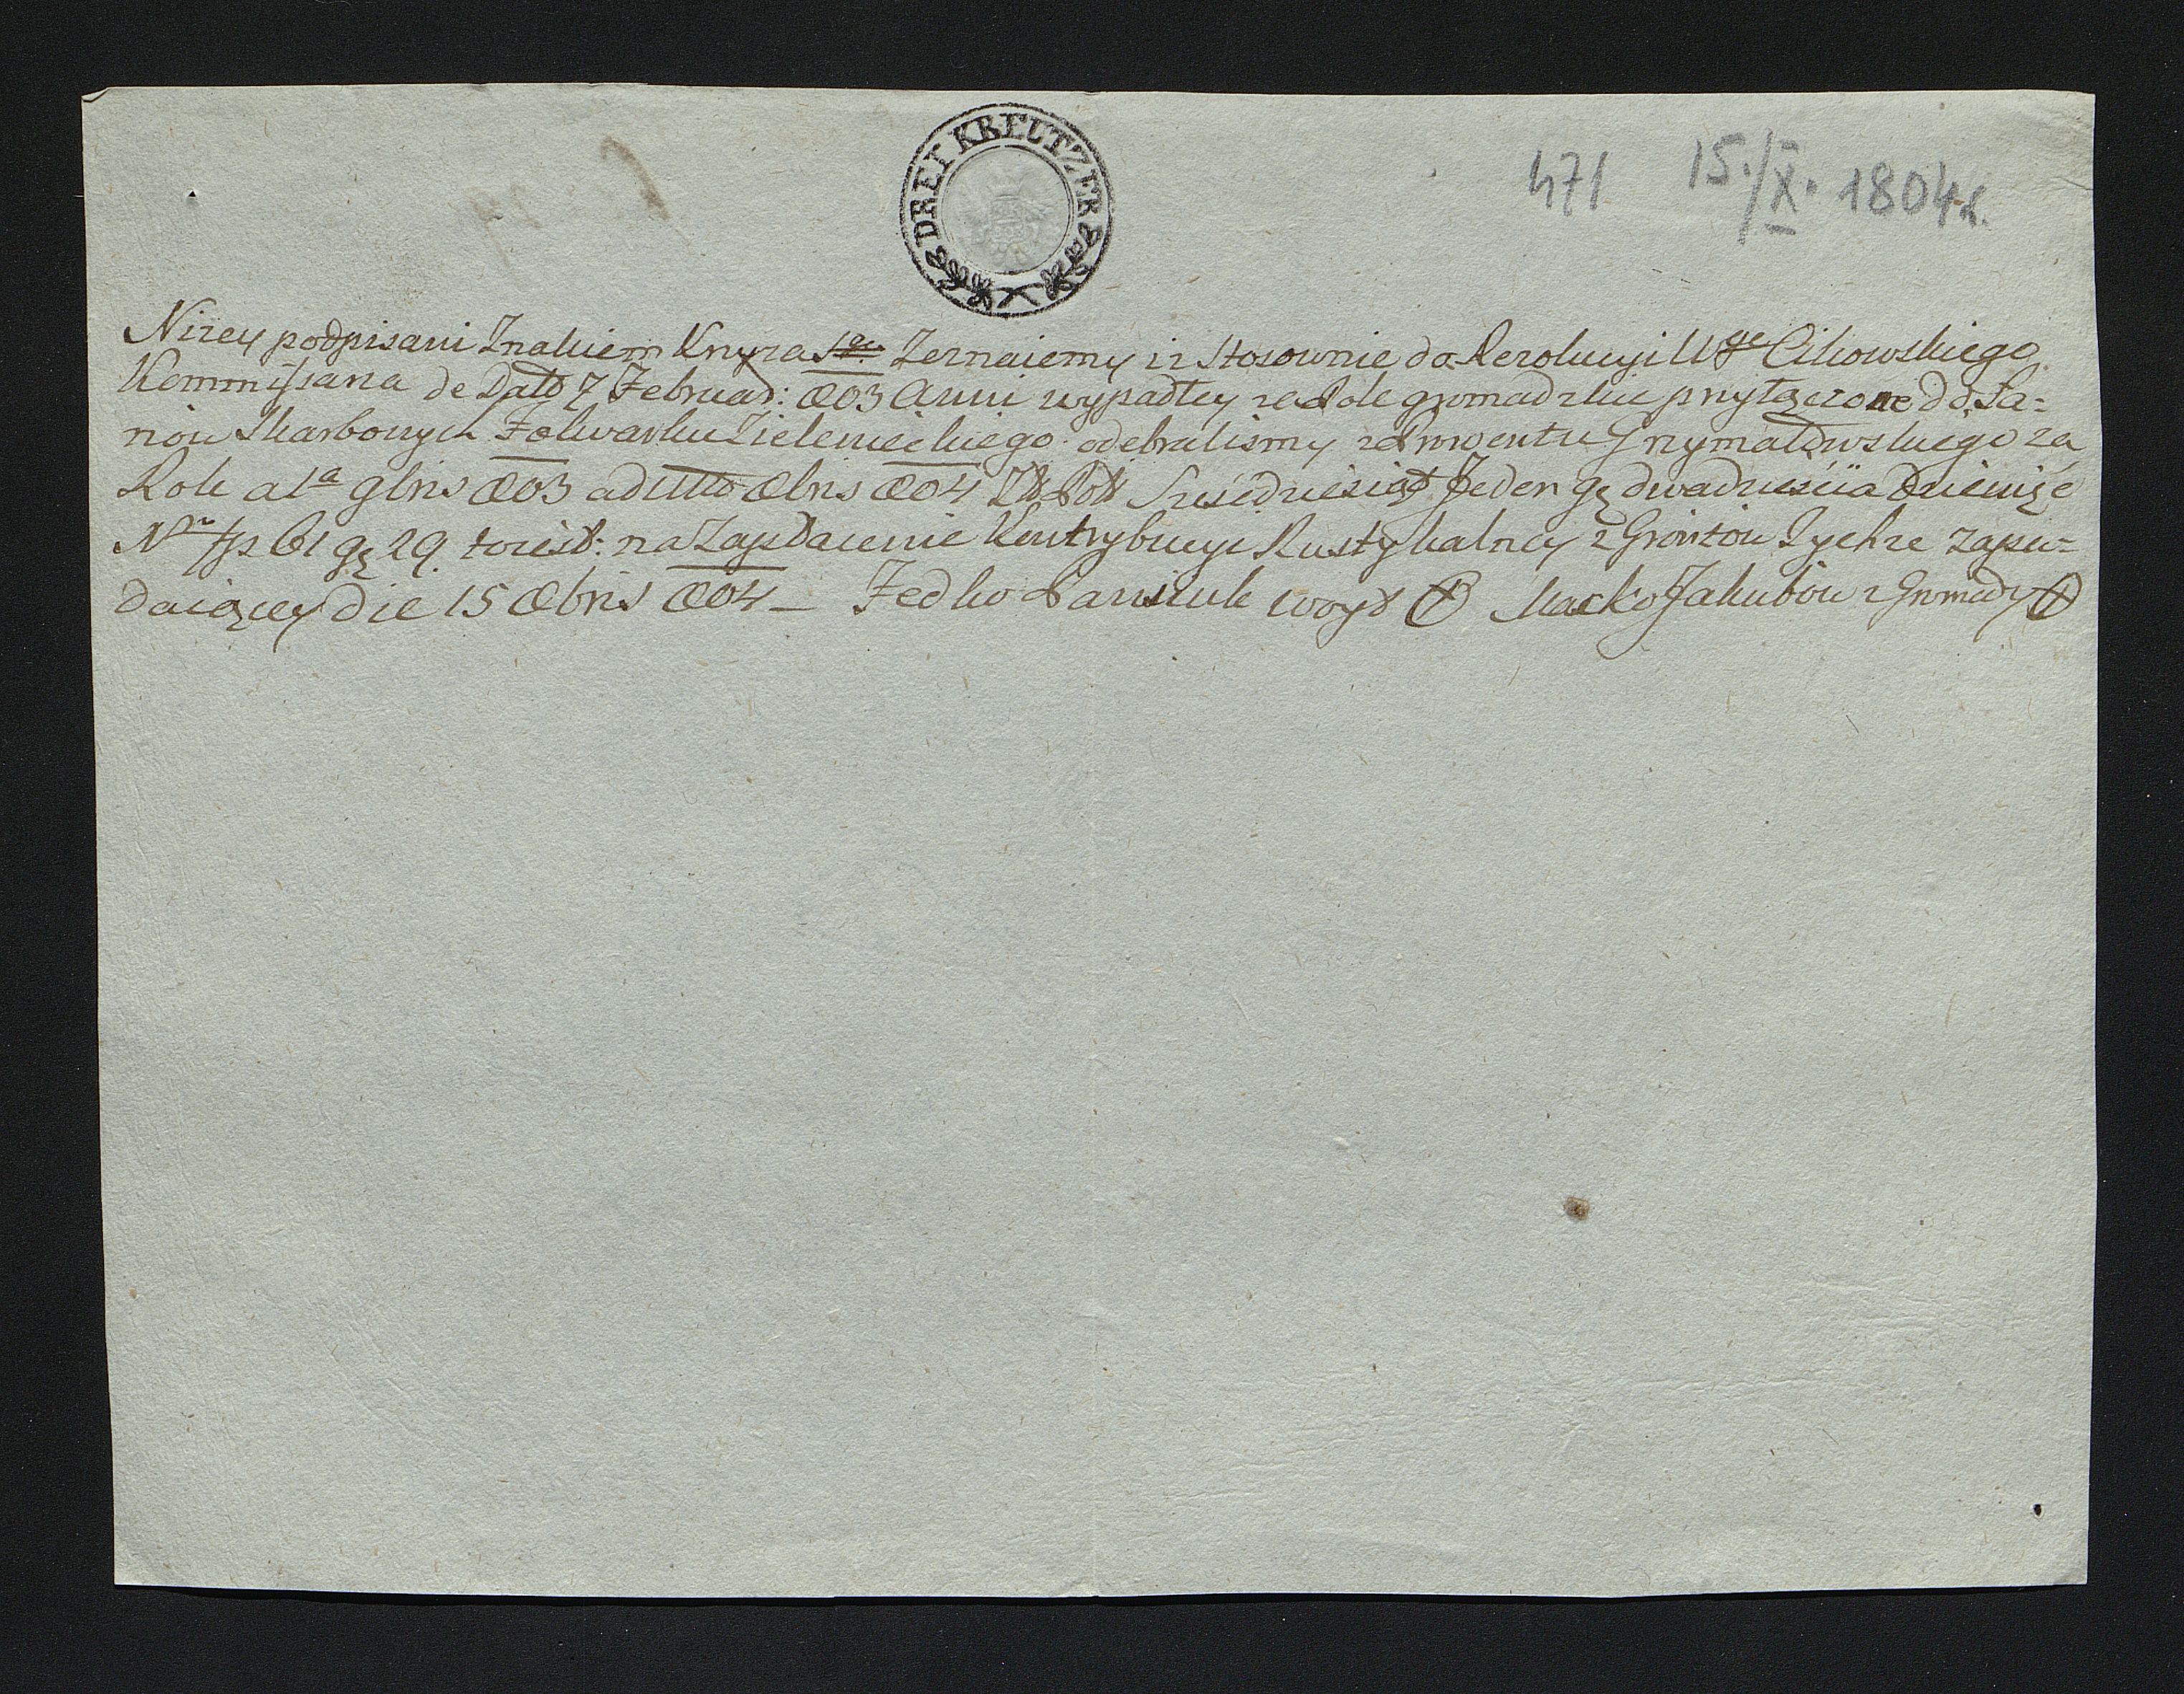 DREI KREUTZER
471 15./X. 1804 r.
Nizey podpisani Znakiem Krzyża Sgo Zeznaiemy iż Stosownie do Rezolucyi Wgo Cikowskiego
Kommissarza de Dato 7 Februar: 803 Anni wypadłey za Role gromadzkie przyłączone do Ła=
nów Skarbowych Folwarku Zielenieckiego odebralismy z Prowentu Grzymałowskiego za
Role a 1a 9bris 803 ad ultm 8bris 804 Zł Pol Szesćdziesiąt Jeden gę dwadziescia Dziewięć
Nr fp 61 gę 29. to iest: na Zapłacenie Kontrybucyi Rustykalney z Gruntów Tychże zapa=
daiącey die 15 8bris 804 — Fedko Pawluk woyt Macko Jakubów z Gromady